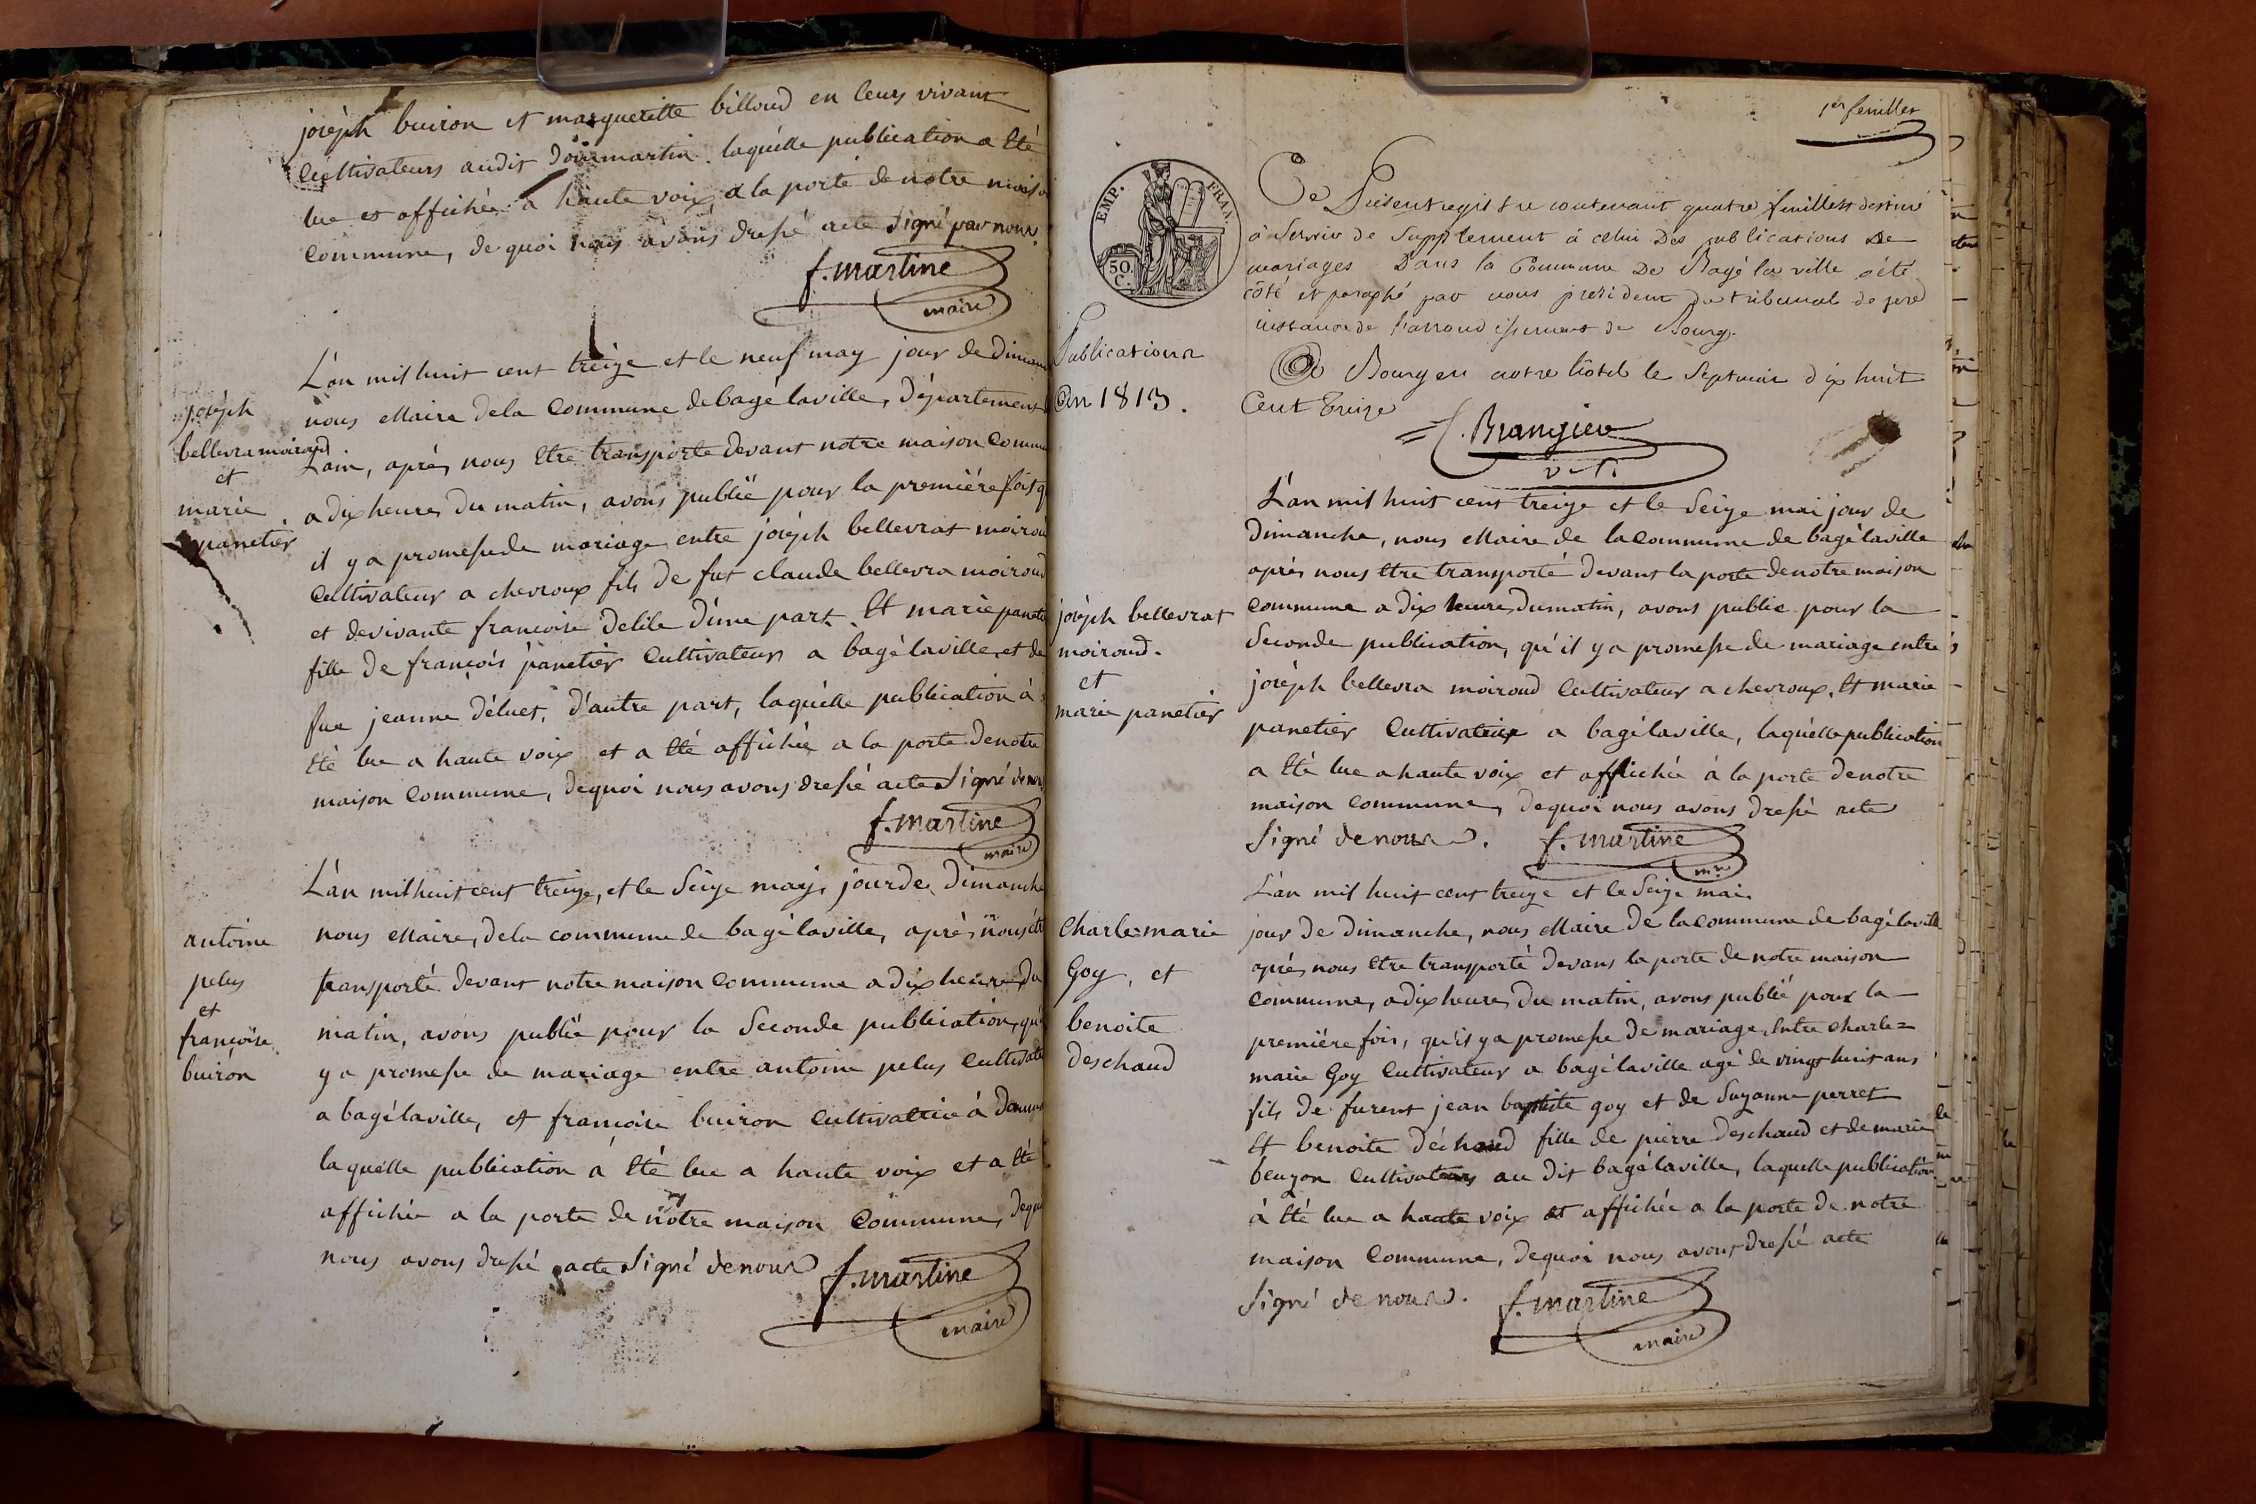 joséph buiron et marguerite billoud en leurs vivant
Cultivateurs audit dommartin. laquélle publication a été
lue et affichée a haute voix, a la porte de notre maison
commune, de quoi nous avons dressé acte signé par nous.
f. martine
maire
joséph
bellevra moiroud
et
marie
panetier
L'an mil huit cent treize et le neuf may jour de diman
nous Maire dela Commune de bagé laville, Département
Lain, aprés nous étre transporté devant notre maison Commu
a dix heures du matin, avons publié pour la premiére fois q
il y a promesse de mariage entre joséph bellevrat moirou
Cultivateur a chevroux fils de fut claude bellevra moiroud
et devivante francoise Delile d'une part. Et marie panet
fille de françois panetier Cultivateurs a bagé laville, et de
fue jeanne déluet, d'autre part, laquélle publication à
été lue a haute voix et a été affichée a la porte denotre
maison Commune, dequoi nous avons dressé acte signé de nou
f. martine
maire
antoine
pelus
et
françoise
buiron
L'an mil huit cent treize, et le Seize may, jour de Dimanche
nous Maire, dela commune de bagé laville, aprés nous ét
transporté devant notre maison Commune a dix heures du
matin, avons publié pour la Seconde publication, qu'
y a promesse de mariage entre antoine pelus Cultivate
a bagé laville, et francoise buiron Cultivatrice à Dommar
laquélle publication à été lue a haute voix et a été
affichée a la porte de notre maison Commune, dequ
nous avons dressé acte signé de nous
f. martine
maire
1er feuillet
EMP. FRAN.
50. C.
Publications
An 1813.
Ce Présent registre contenant quatre feuillets destiné
à Servir de Supplement à celui Des publications De
mariages Dans la Commune De Bagé la ville a été
côté et paraphé par nous président du tribunal de pere
instance de l'arrondissement de Bourg.
A Bourg en notre hôtel le Sept mai dix huit
Cent treize
Brangier
joséph bellevrat
moiroud.
et
marie panetier
L'an mil huit cent treize et le Seize mai jour de
Dimanche, nous Maire de la commune de bagé laville
aprés nous étre transporté devant la porte denotre maison
Commune a dix heures Du matin, avons publié pour la
Seconde publication, qu'il y a promesse de mariage entre
joséph bellevra moiroud Cultivateur a chevroux, Et marie
panetier Cultivatrice a bagé laville, laquélle publication
a été lue a haute voix et affichée à la porte denotre
maison Commune, dequoi nous avons dressé acte
signé de nous. f. martine
mre
Charle=marie
Goy, et
benoite
deschaud
L'an mil huit cent treize et le Seize mai
jour de Dimanche, nous Maire de la commune de bagé laville
aprés nous étre transporté devans la porte de notre maison
Commune, a dix heures Du matin, avons publié pour la
premiére fois, qu'il y a promesse de mariage, entre charle=
marie Goy Cultivateur a bagé laville agé de vingt huit ans
fils de furent jean baptiste goy et de Suzanne perret
Et benoite déchaud fille de pierre Deschaud et de marie
feuzon Cultivateurs au dit bagé laville, laquelle publication
à été lue a haute voix et affichée a la porte de notre
maison Commune, dequoi nous avons dressé acte
signé de nous. f. martine
maire